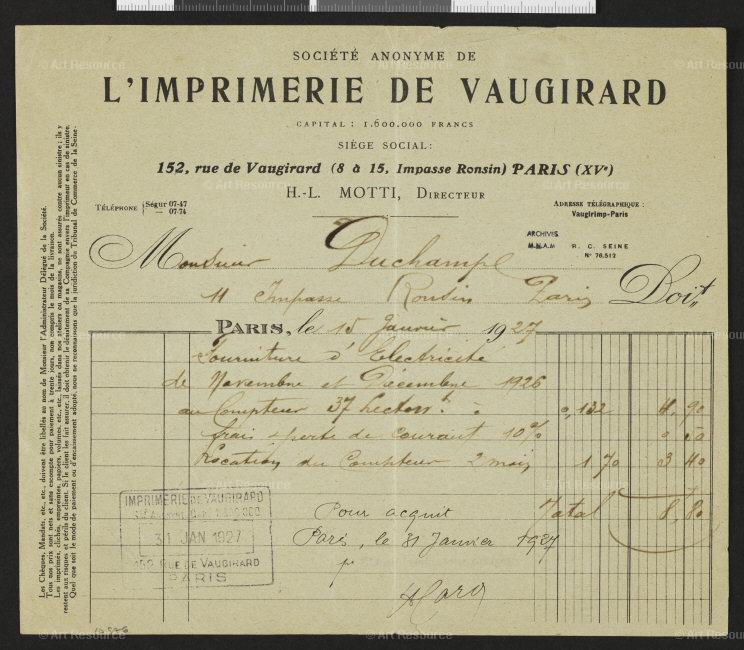 SOCIÉTÉ ANONYME DE
L'IMPRIMERIE DE VAUGIRARD
CAPITAL : 1.600.000 FRANCS
SIÈGE SOCIAL:
152, rue de Vaugirard (8 à 15, Impasse Ronsin) PARIS (XVᵉ)
H.-L. MOTTI, DIRECTEUR
TÉLÉPHONE { Ségur 07-47
— 07-74
ADRESSE TÉLÉGRAPHIQUE :
Vaugirimp-Paris
ARCHIVES
M.N.A.M
R. C. SEINE
N° 76.512
Monsieur Duchamp
11 Impasse Ronsin Paris Doit
PARIS, le 15 Janvier 1927
Fourniture d'Electricité
de Novembre et Décembre 1926
au Compteur 37 hectow. à 0,132 4,90
frais & perte de courant 10% 0 50
Location du Compteur 2 mois 1 70 3 40
Total 8 80
Pour acquit
Paris, le 31 Janvier 1927
IMPRIMERIE DE VAUGIRARD
31 JAN 1927
152 RUE DE VAUGIRARD
PARIS
Les Chèques, Mandats, etc., etc., doivent être libellés au nom de Monsieur l'Administrateur Délégué de la Société.
Tous nos prix sont nets et sans escompte pour paiement à trente jours, non compris le mois de la livraison.
Les imprimés, clichés, maquettes, papiers, volumes, etc., etc., laissés dans nos ateliers ou magasins, ne sont assurés contre aucun sinistre ; ils y
restent aux risques et périls du client. Si le client les fait assurer, il doit obtenir le désistement de sa Compagnie envers l'Imprimeur en cas de sinistre.
Quel que soit le mode de paiement ou d'encaissement adopté, nous ne reconnaissons que la juridiction du Tribunal de Commerce de la Seine.
© Art Resource